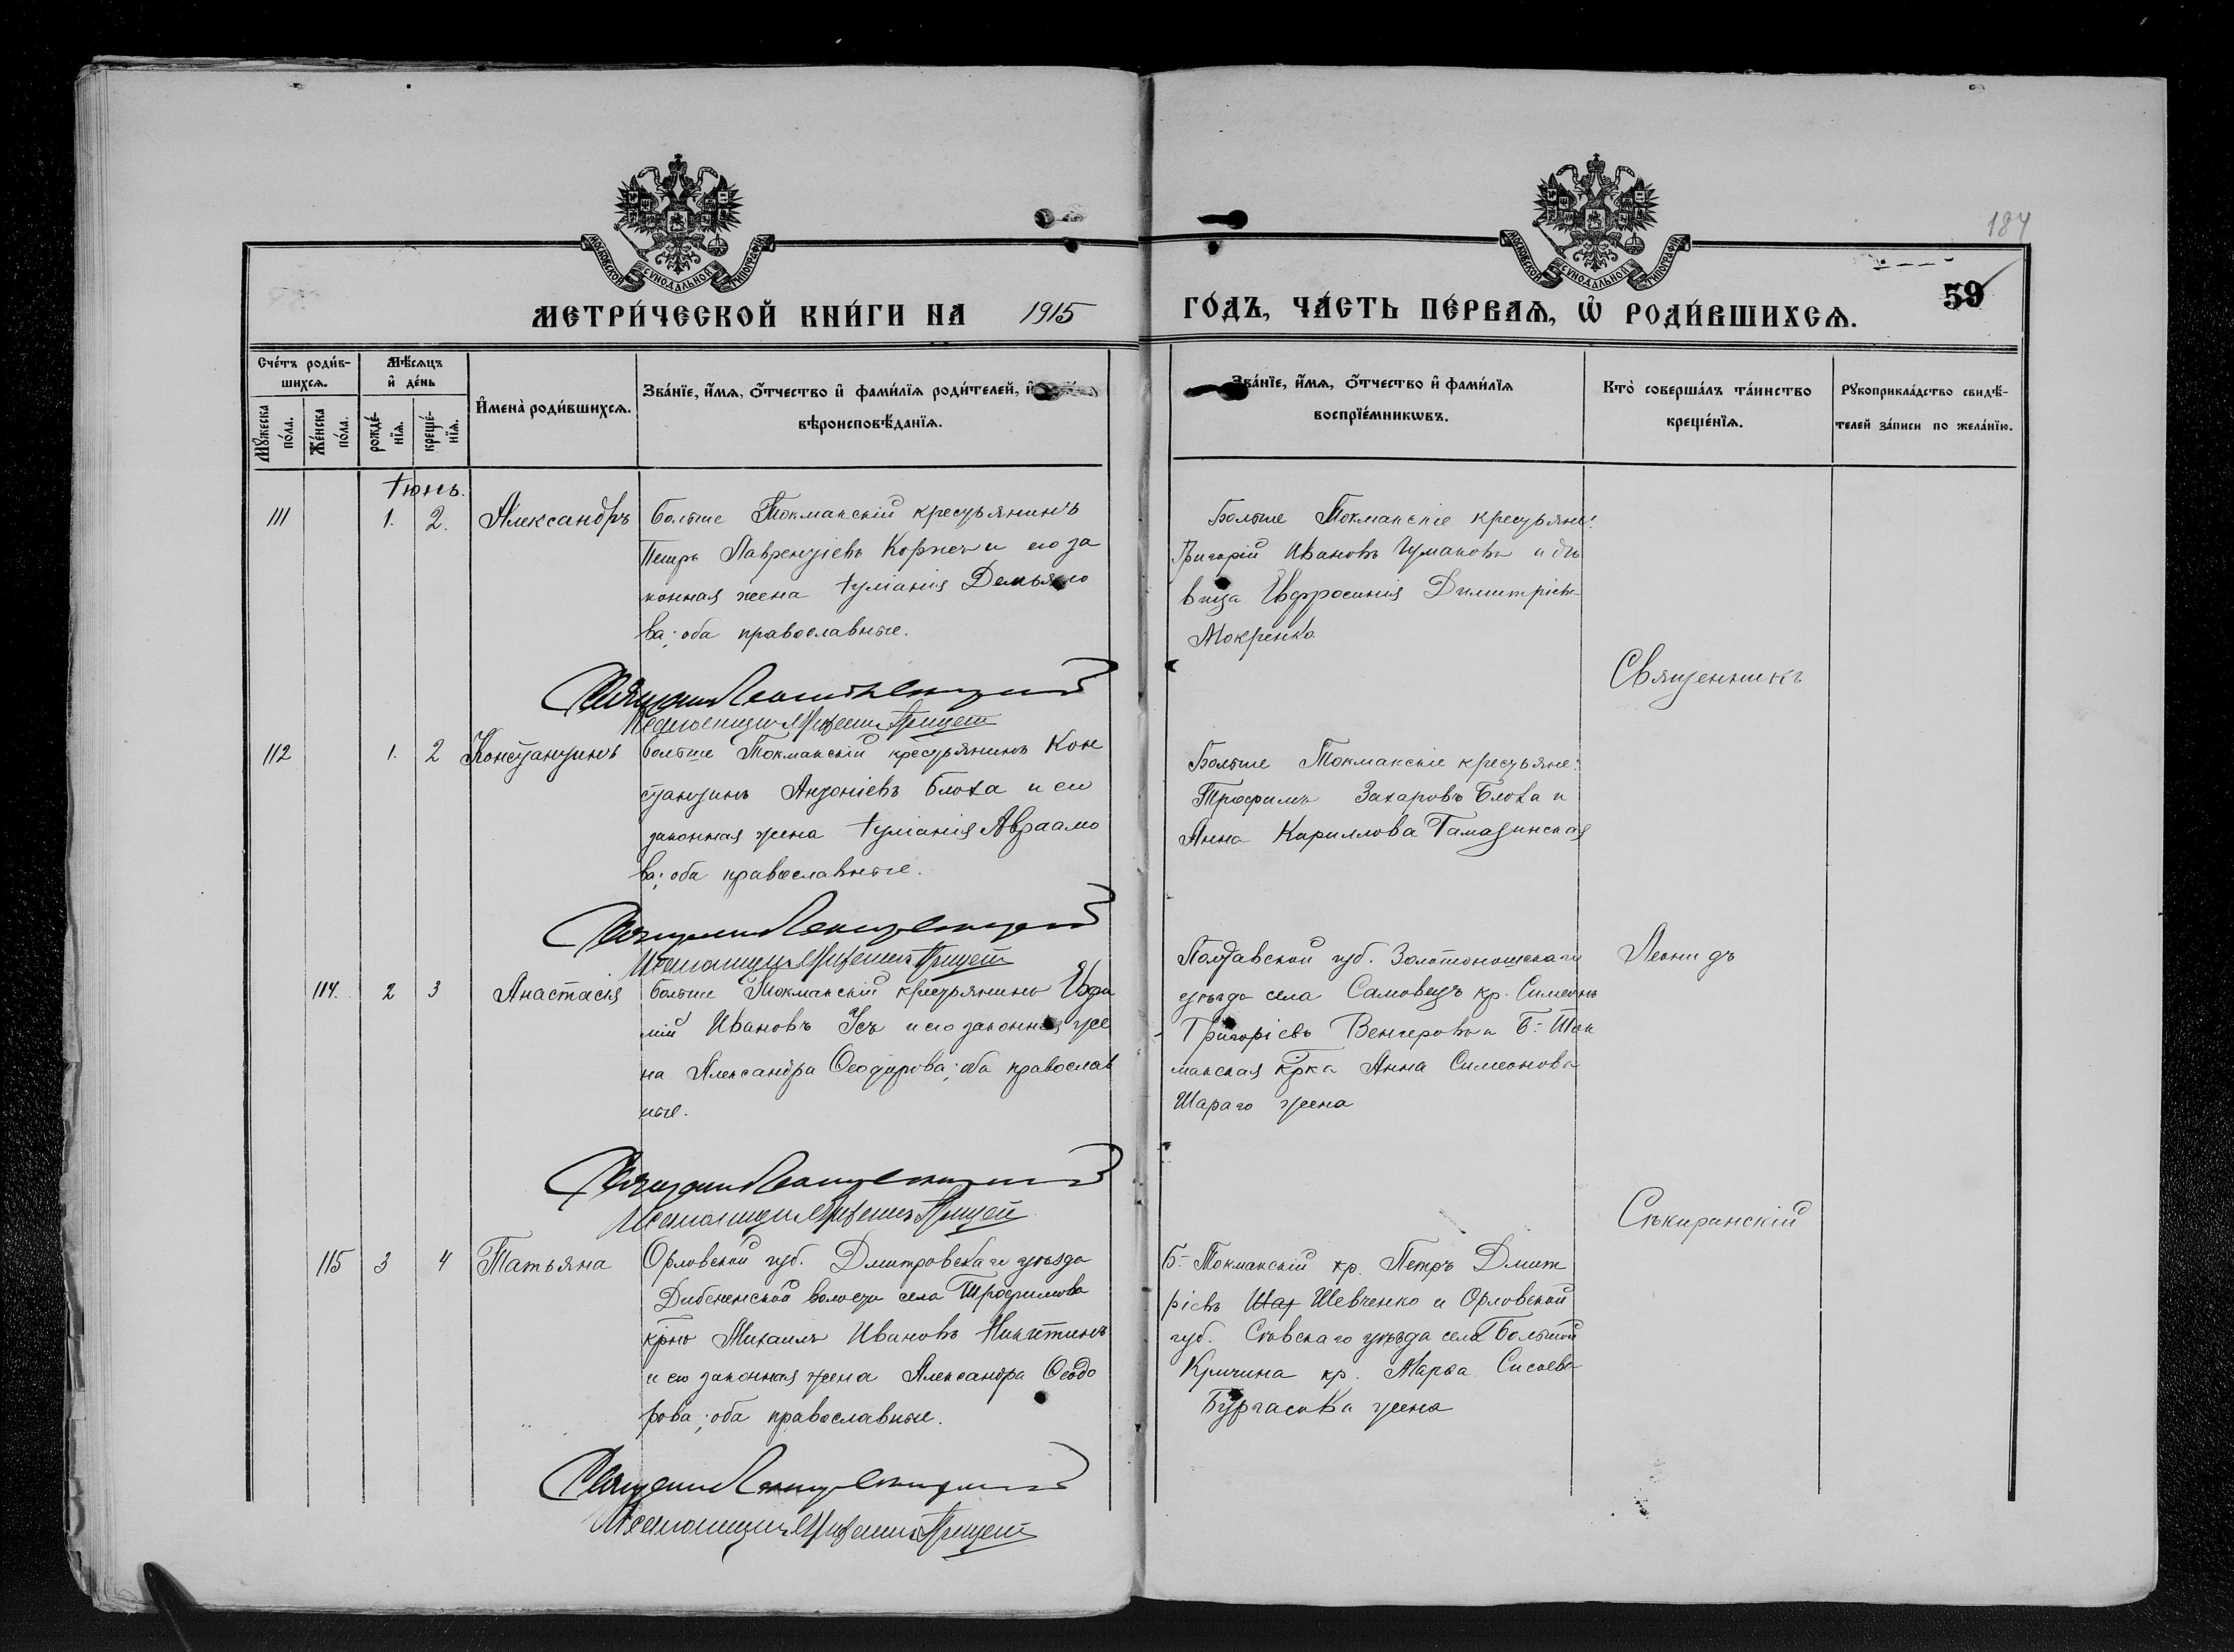 184
59
МОСКОВСКОЙ СѴНОДАЛЬНОЙ ТИПОГРАФІИ
МОСКОВСКОЙ СѴНОДАЛЬНОЙ ТИПОГРАФІИ
МЕТРИ́ЧЕСКОЙ КНИ́ГИ НА 1915 ГО́ДЪ, ЧА́СТЬ ПЕ́РВАЯ, Ѿ РОДИ́ВШИХСЯ.
Сче́тъ роди́в-
шихся.
Мꙋ́жеска
по́ла.
Же́нска
по́ла.
Мѣ́сяцъ
и҆ де́нь
рожде́-
нїя.
креще́-
нїя.
И҆мена̀ роди́вшихся.
Зва́нїе, и҆́мя, ѻ҆́тчество и҆ фами́лїя роди́телей, и҆
вѣроисповѣ́данїя.
Зва́нїе, и҆́мя, ѻ҆́тчество и҆ фами́лїя
воспрїе́мникѡвъ.
Кто̀ соверша́лъ та́инство
креще́нїя.
Рꙋкоприкла́дство свидѣ́-
телей за́писи по жела́нїю.
Іюнь.
111 1. 2. Александръ
Больше Токмакскій крестьянинъ
Петръ Лаврентіевъ Коржъ и его за
конная жена Іуліанія Демьяно
ва; оба православные.
Больше Токмакскіе крестьяне:
Григорій Ивановъ Чумаковъ и дѣ
вица Евфросинія Димитріева
Мокренко
Священникъ
112 1. 2 Константинъ
Больше Токмакскій крестьянинъ Кон
стантинъ Антоніевъ Блоха и его
законная жена Іуліанія Авраамо
ва; оба православные.
Больше Токмакскіе крестьяне:
Трофимъ Захаровъ Блоха и
Анна Кириллова
Леонидъ
114. 2 3 Анастасія
Больше Токмакскій крестьянинъ Евфи
мій Ивановъ Усъ и его законная же
на Александра Ѳеодорова; оба православ
ные.
Полтавской губ. Золотоношскаго
уѣзда села кр. Симеонъ
Григоріевъ Венгеровъ и Б.-Ток
макская кр-ка Анна Симеонова
Шараго жена
Сѣкиранскій
115 3 4 Татьяна
Орловской губ. Дмитровскаго уѣзда
волости села Трофимова
кр-нъ Михаилъ Ивановъ Никитинъ
и его законная жена Александра Ѳеодо
рова; оба православные.
Б.-Токмакскій кр. Петръ Дмит
ріевъ Шах Шевченко и Орловской
губ. Сѣвскаго уѣзда села Большой
кр. Марѳа Сисоева
жена